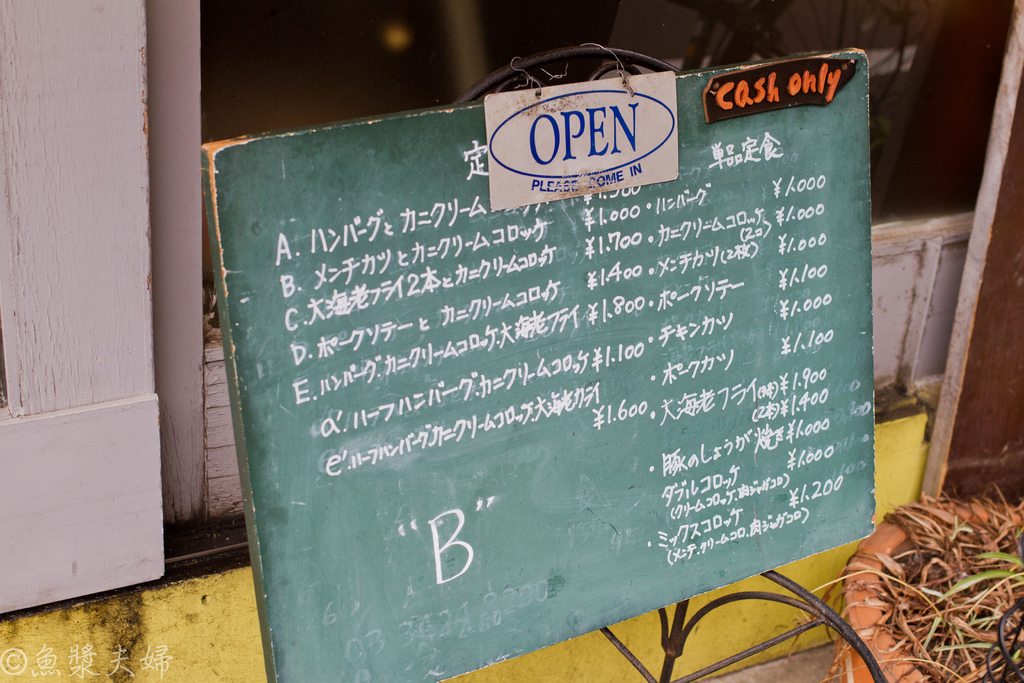 cash only
OPEN
PLEASE COME IN
定
A. ハンバーグと カニクリーム
B. メンチカツとカニクリームコロッケ ¥1.000
C. 大海老フライ2本とカニクリームコロッケ ¥1.700
D. ポークソテーと カニクリームコロッケ ¥1.400
E. ハンバーグ.カニクリームコロッケ.大海老フライ ¥1.800
a'. ハーフハンバーグ.カニクリームコロッケ ¥1.100
e'. ハーフハンバーグ.カニクリームコロッケ.大海老フライ ¥1.600
"B"
単品定食
・ハンバーグ ¥1.000
・カニクリームコロッケ(2コ) ¥1.000
・メンチカツ(2枚) ¥1.000
・ポークソテー ¥1.100
・チキンカツ ¥1.000
・ポークカツ ¥1.100
・大海老フライ ¥1.900
(2本) ¥1.400
・豚のしょうが焼き ¥1.000
ダブルコロッケ ¥1.000
(クリームコロッケ.肉ジャガコロ)
・ミックスコロッケ ¥1.200
(メンチ.クリームコロ.肉ジャガコロ)
©魚漿夫婦